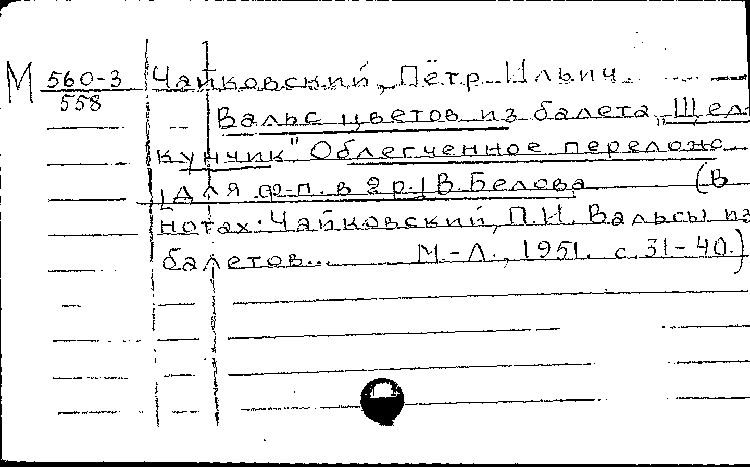 М 560-3 Чайковский, Пётр Ильич.
558
Вальс цветов из балета „Щел-
кунчик" Облегченное перелож.
[для ф-п. в 2 р.] В. Белова (В
нотах: Чайковский, П.И. Вальсы из
балетов... М-Л., 1951. с. 31-40.)